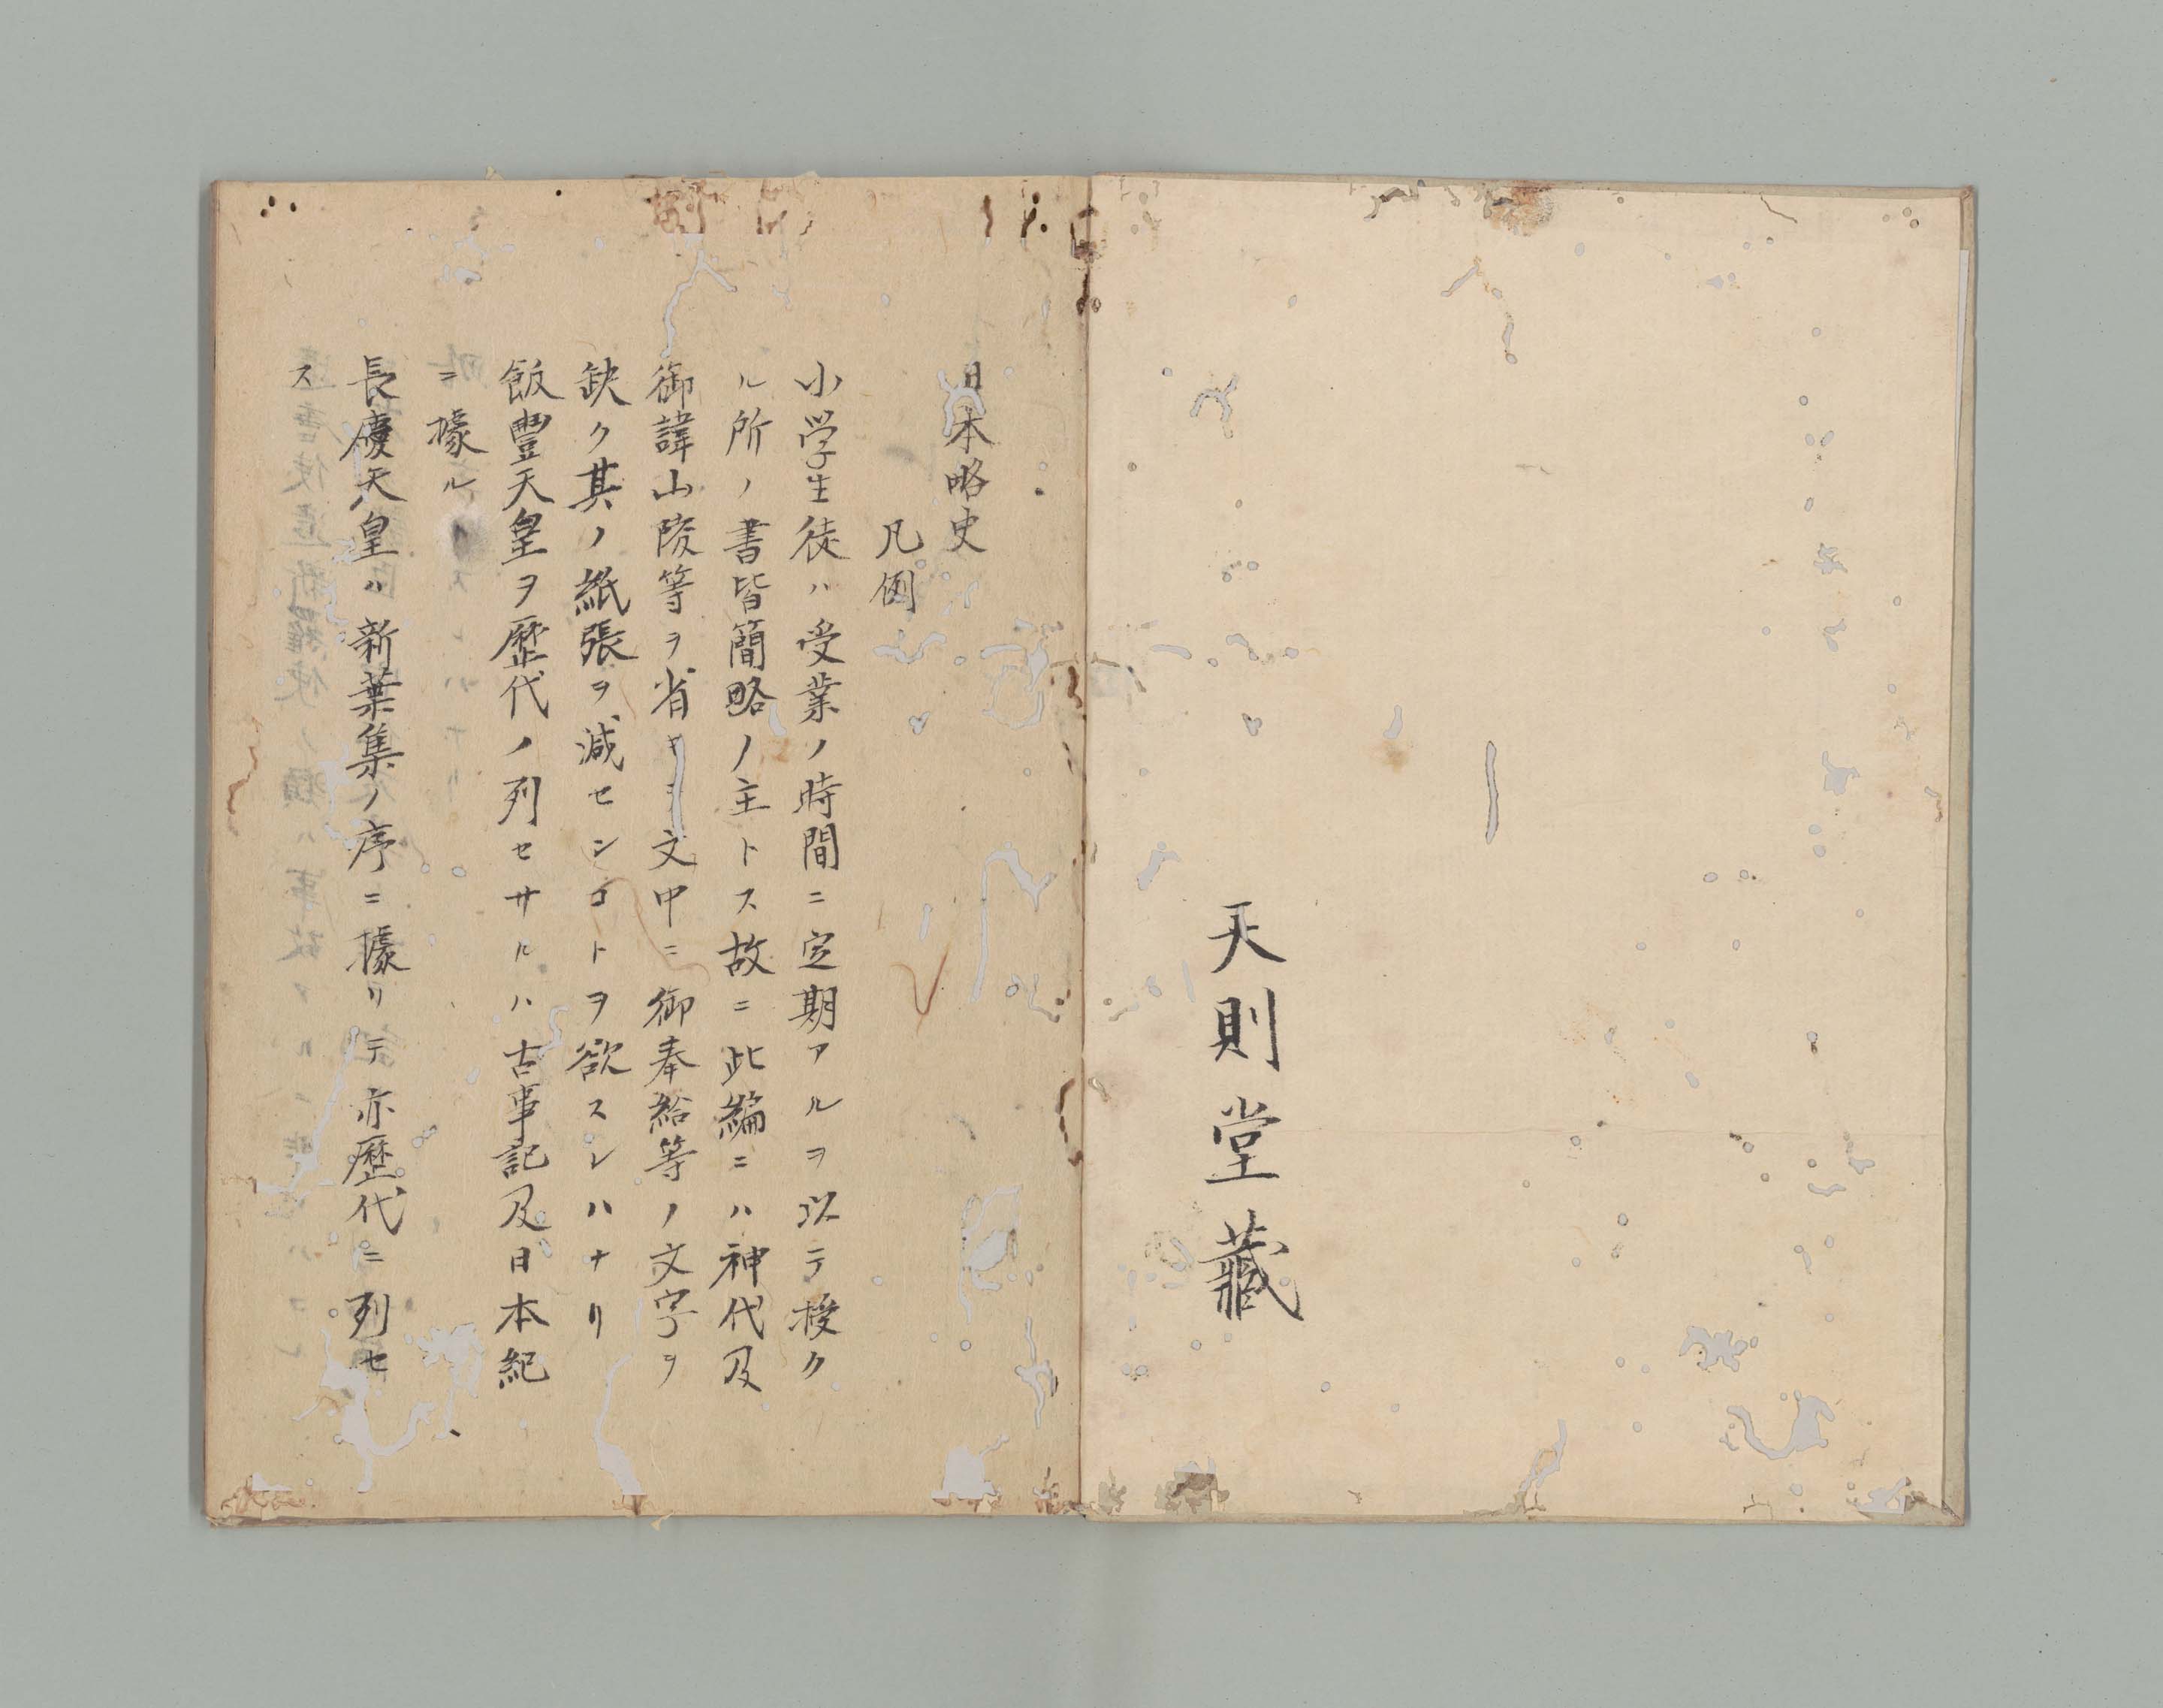 天則堂藏
日本略史
凡例
小学生徒ハ受業ノ時間ニ定期アルヲ以テ授ク
ル所ノ書皆簡略ノ主トス故ニ此編ニハ神代及
御諱山陵等ヲ省キ文中ニ御奉給等ノ文字ヲ
缺ク其ノ紙張ヲ減センコトヲ欲スレハナリ
飯豐天皇ヲ歴代ノ列セサルハ古事記及日本紀
ニ據ル
長慶天皇ハ新葉集ノ序ニ據リテ亦歴代ニ列セ
ス